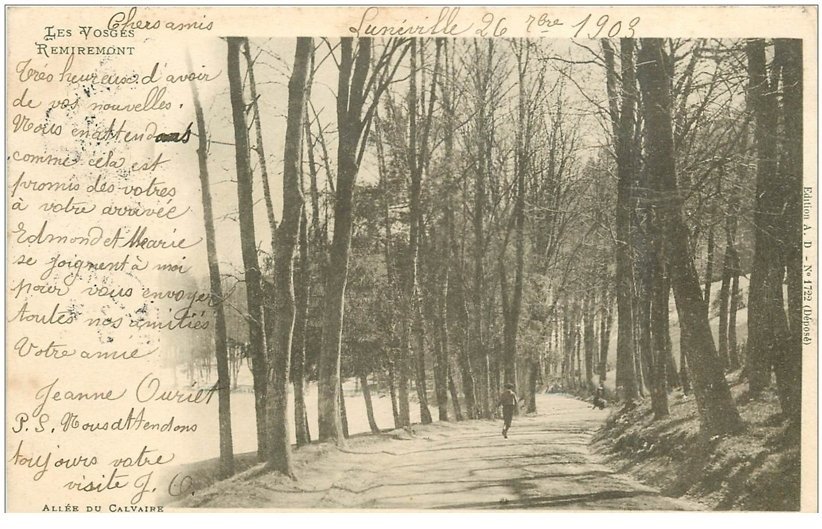 Chers amis Lunéville 26 9bre 1903
LES VOSGES
REMIREMONT
Très heureux d'avoir
de vos nouvelles.
Nous en attendons
comme cela est
promis des votres
à votre arrivée
Edmond et Marie
se joignent à moi
pour vous envoyer
toutes nos amitiés
Votre amie
Jeanne
P.S. Nous attendons
toujours votre
visite J. O.
ALLÉE DU CALVAIRE
Edition A. D – No 1722 (Déposé)